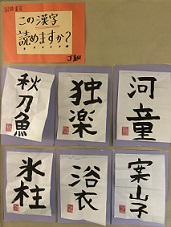 この漢字
読めますか?
河童
独楽
秋刀魚
案山子
浴衣
氷柱